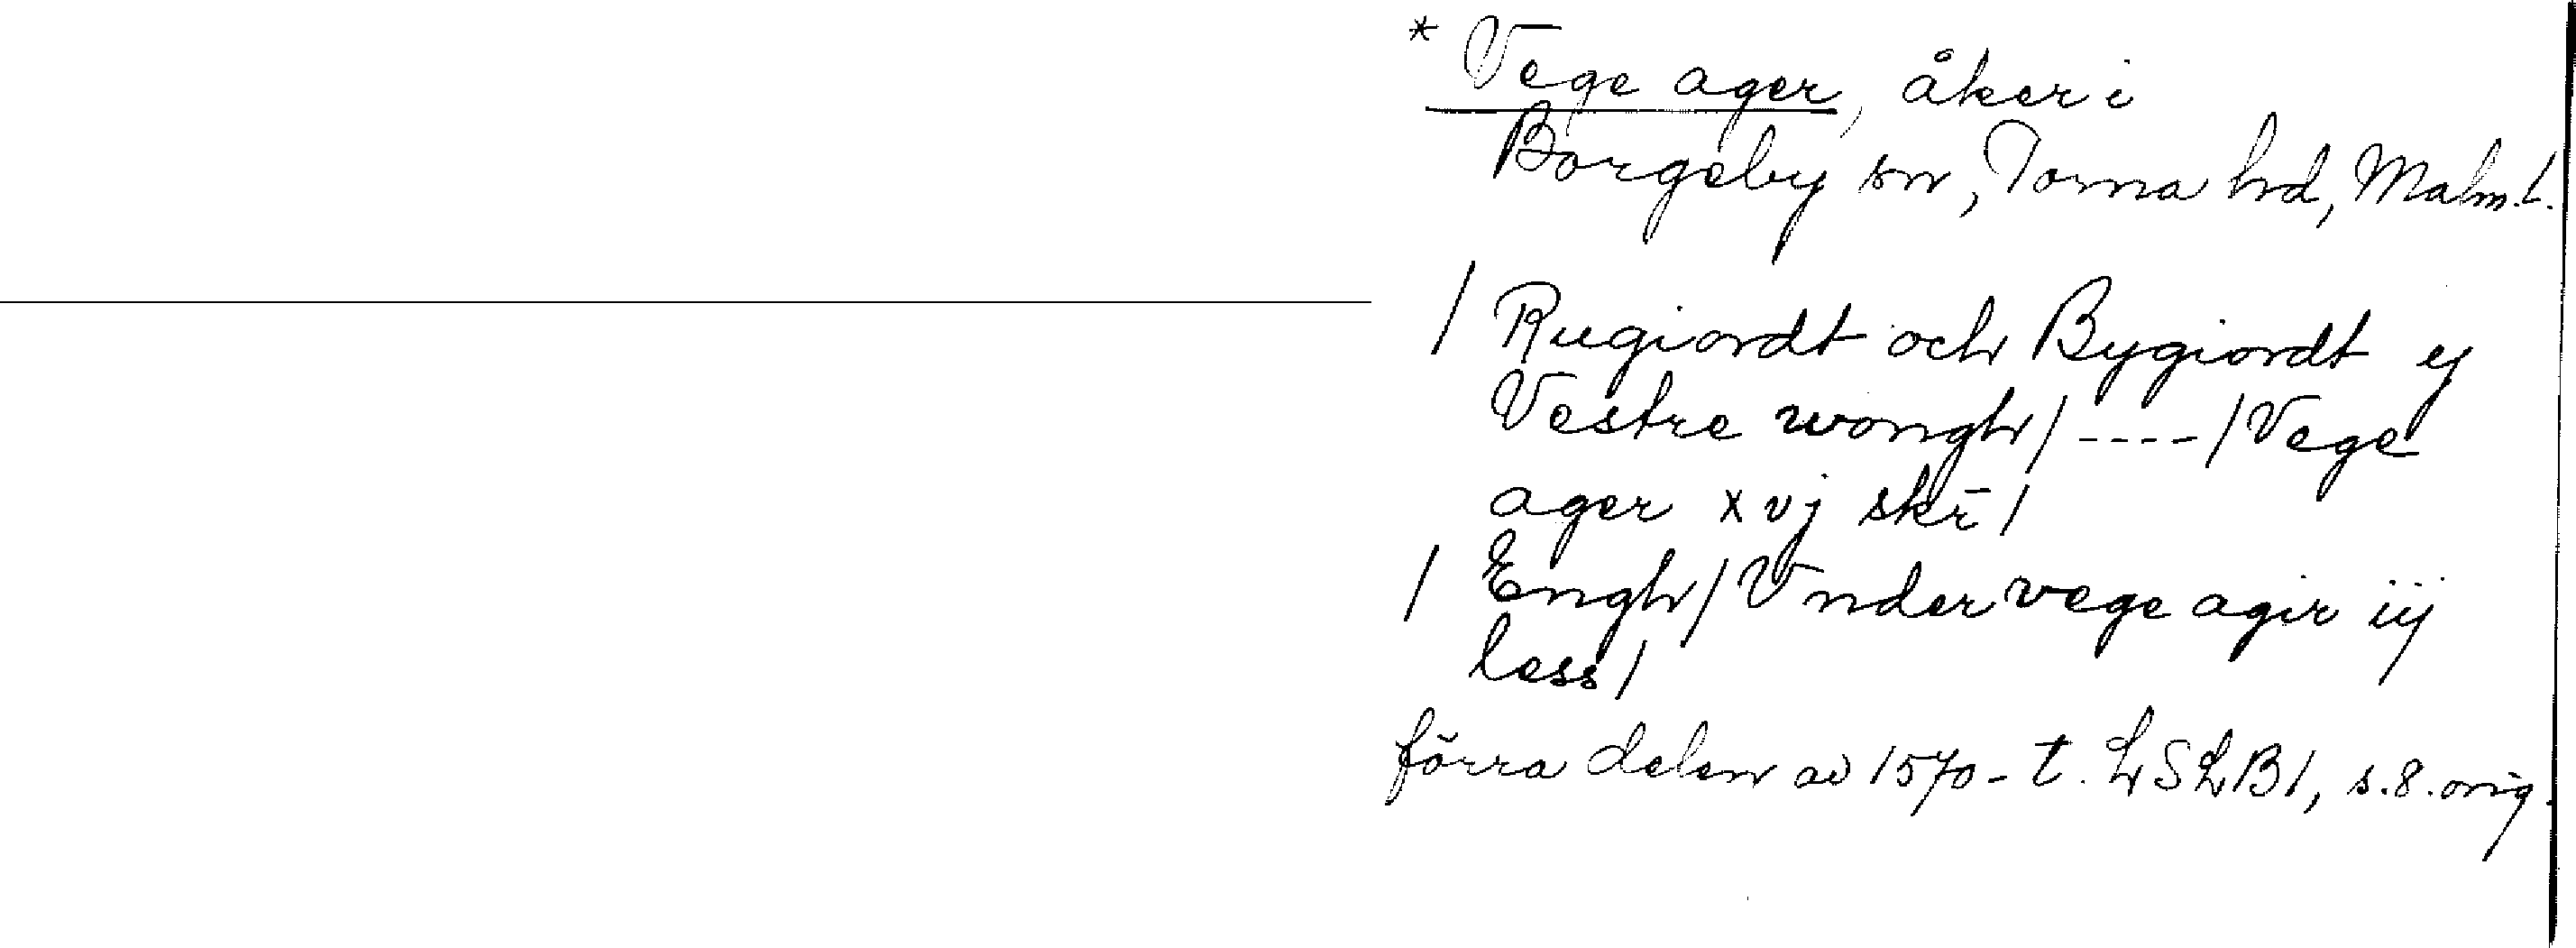 * Vege ager, åker i
Borgeby sn, Torna hd, Malm. L.
/ Rugiordt och Bygiordt ij
Vestre wongh / ---- / Vege
ager xvj skr̄ /
/ Engh / Vnder vege agir iij
less /
förra delen av 1570-t. LSLB1, s. 8. orig.